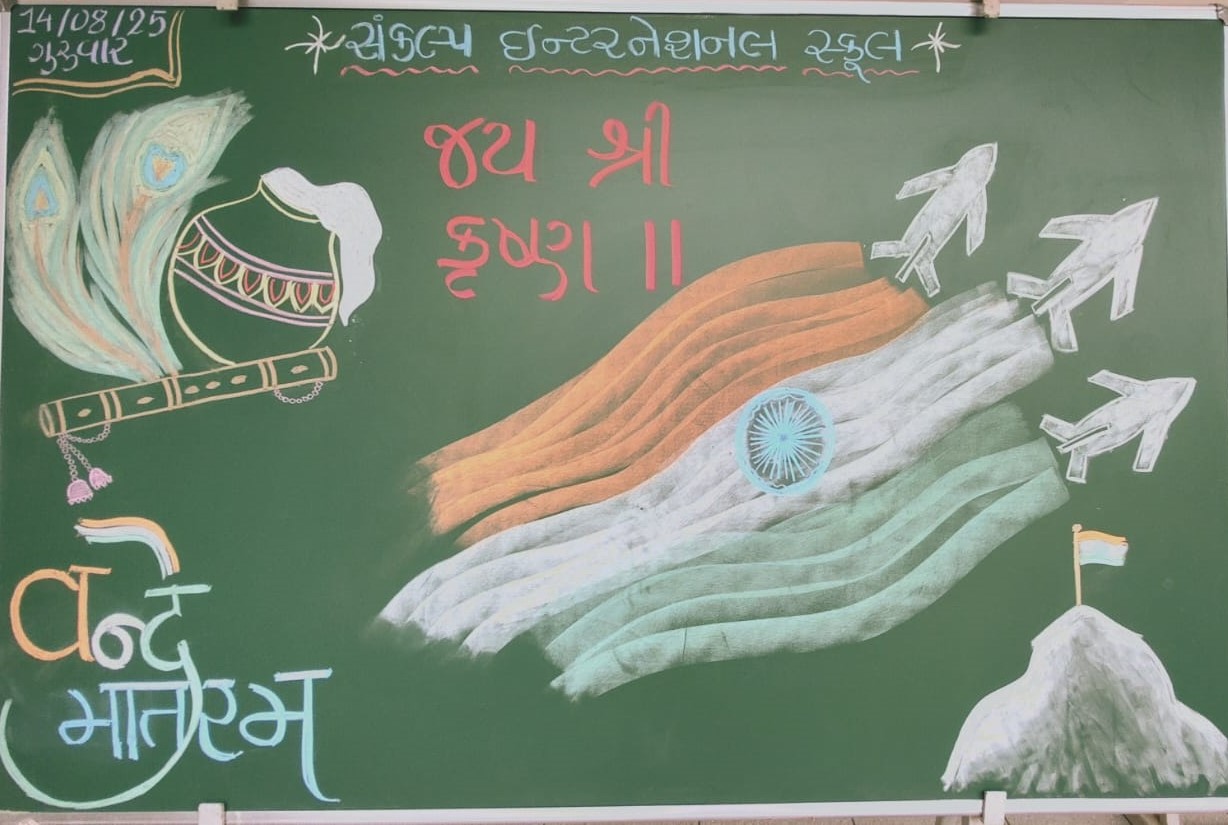 14/08/25
ગુરુવાર
સંકલ્પ ઇન્ટરનેશનલ સ્કૂલ
જય શ્રી
કૃષ્ણ ॥
वन्दे
मातरम